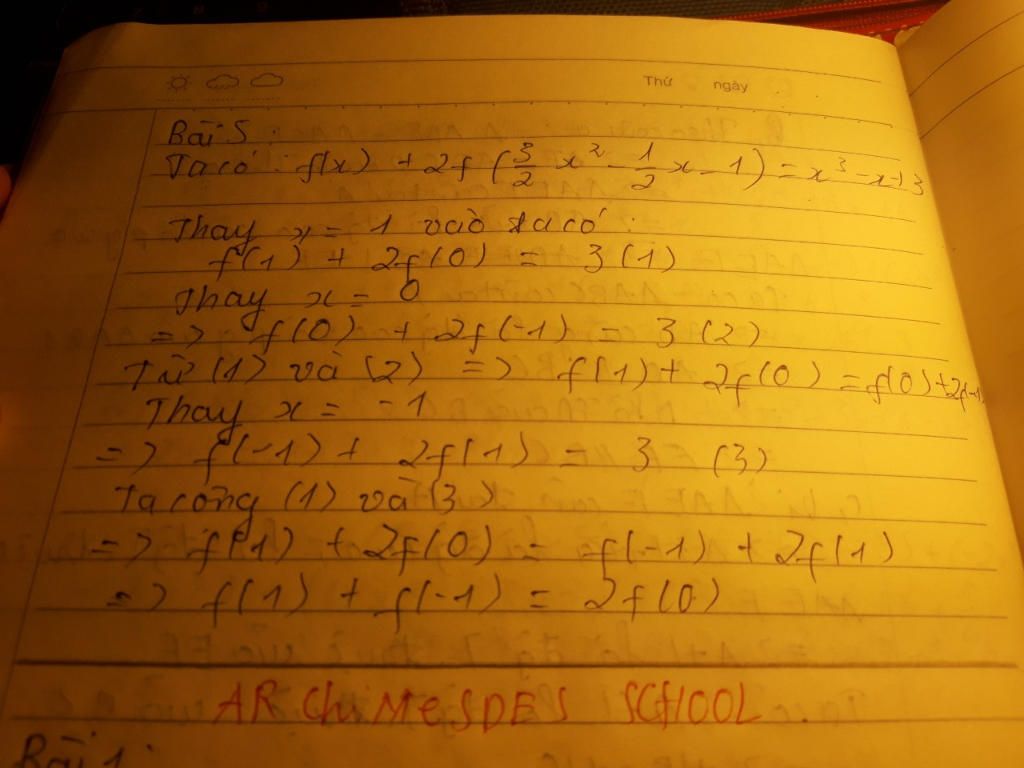 Thứ ngày
Bài 5 :
Ta có : f(x) + 2f(3/2 x² - 1/2 x - 1) = x³ - x + 3
Thay x = 1 vào ta có :
f(1) + 2f(0) = 3 (1)
Thay x = 0
=> f(0) + 2f(-1) = 3 (2)
Từ (1) và (2) => f(1) + 2f(0) = f(0) + 2f(-1)
Thay x = -1
=> f(-1) + 2f(1) = 3 (3)
Ta cộng (1) và (3)
=> f(1) + 2f(0) = f(-1) + 2f(1)
=> f(1) + f(-1) = 2f(0)
ARChiMeSDES SCHOOL
Bài 1 :